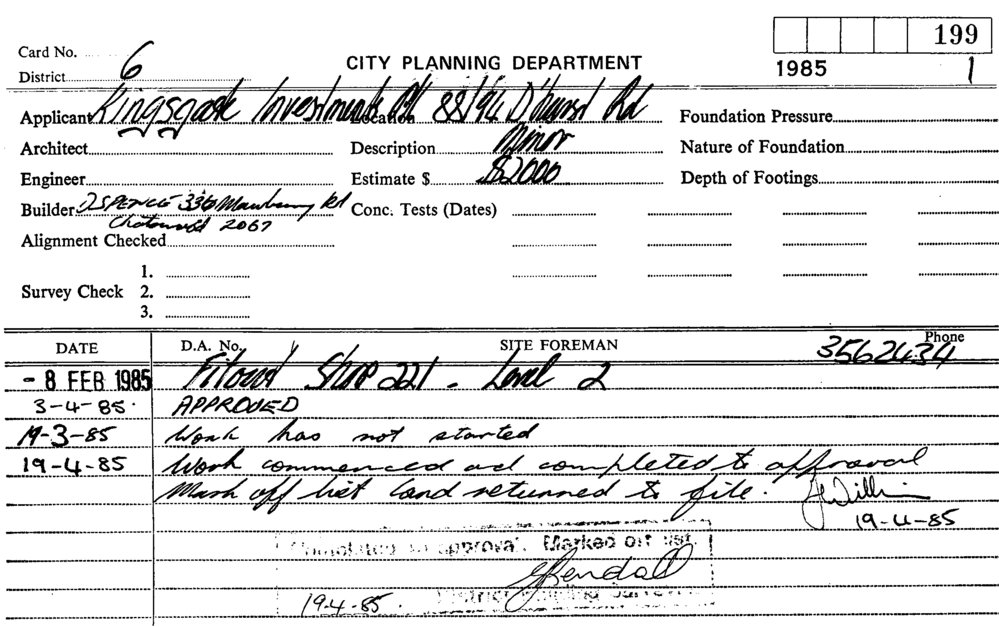 199
Card No.
6
CITY PLANNING DEPARTMENT
1985
1
District
Applicant Kingsgate Investments P/L Location 88/94 D'hurst Rd Foundation Pressure
Architect Description Minor Nature of Foundation
Engineer Estimate $ $2000 Depth of Footings
Builder D SPENCE 336 Rd Conc. Tests (Dates)
Chatswood 2067
Alignment Checked
1.
Survey Check 2.
3.
DATE D.A. No. SITE FOREMAN Phone
3562434
- 8 FEB 1985 Fitout Shop 221 - Level 2
3-4-85. APPROVED
19-3-85 Work has not started
19-4-85 Work commenced and completed to approval
Mark off list Card returned to file.
19-4-85
Completed to approval. Marked off list.
Kendall
19-4-85. District